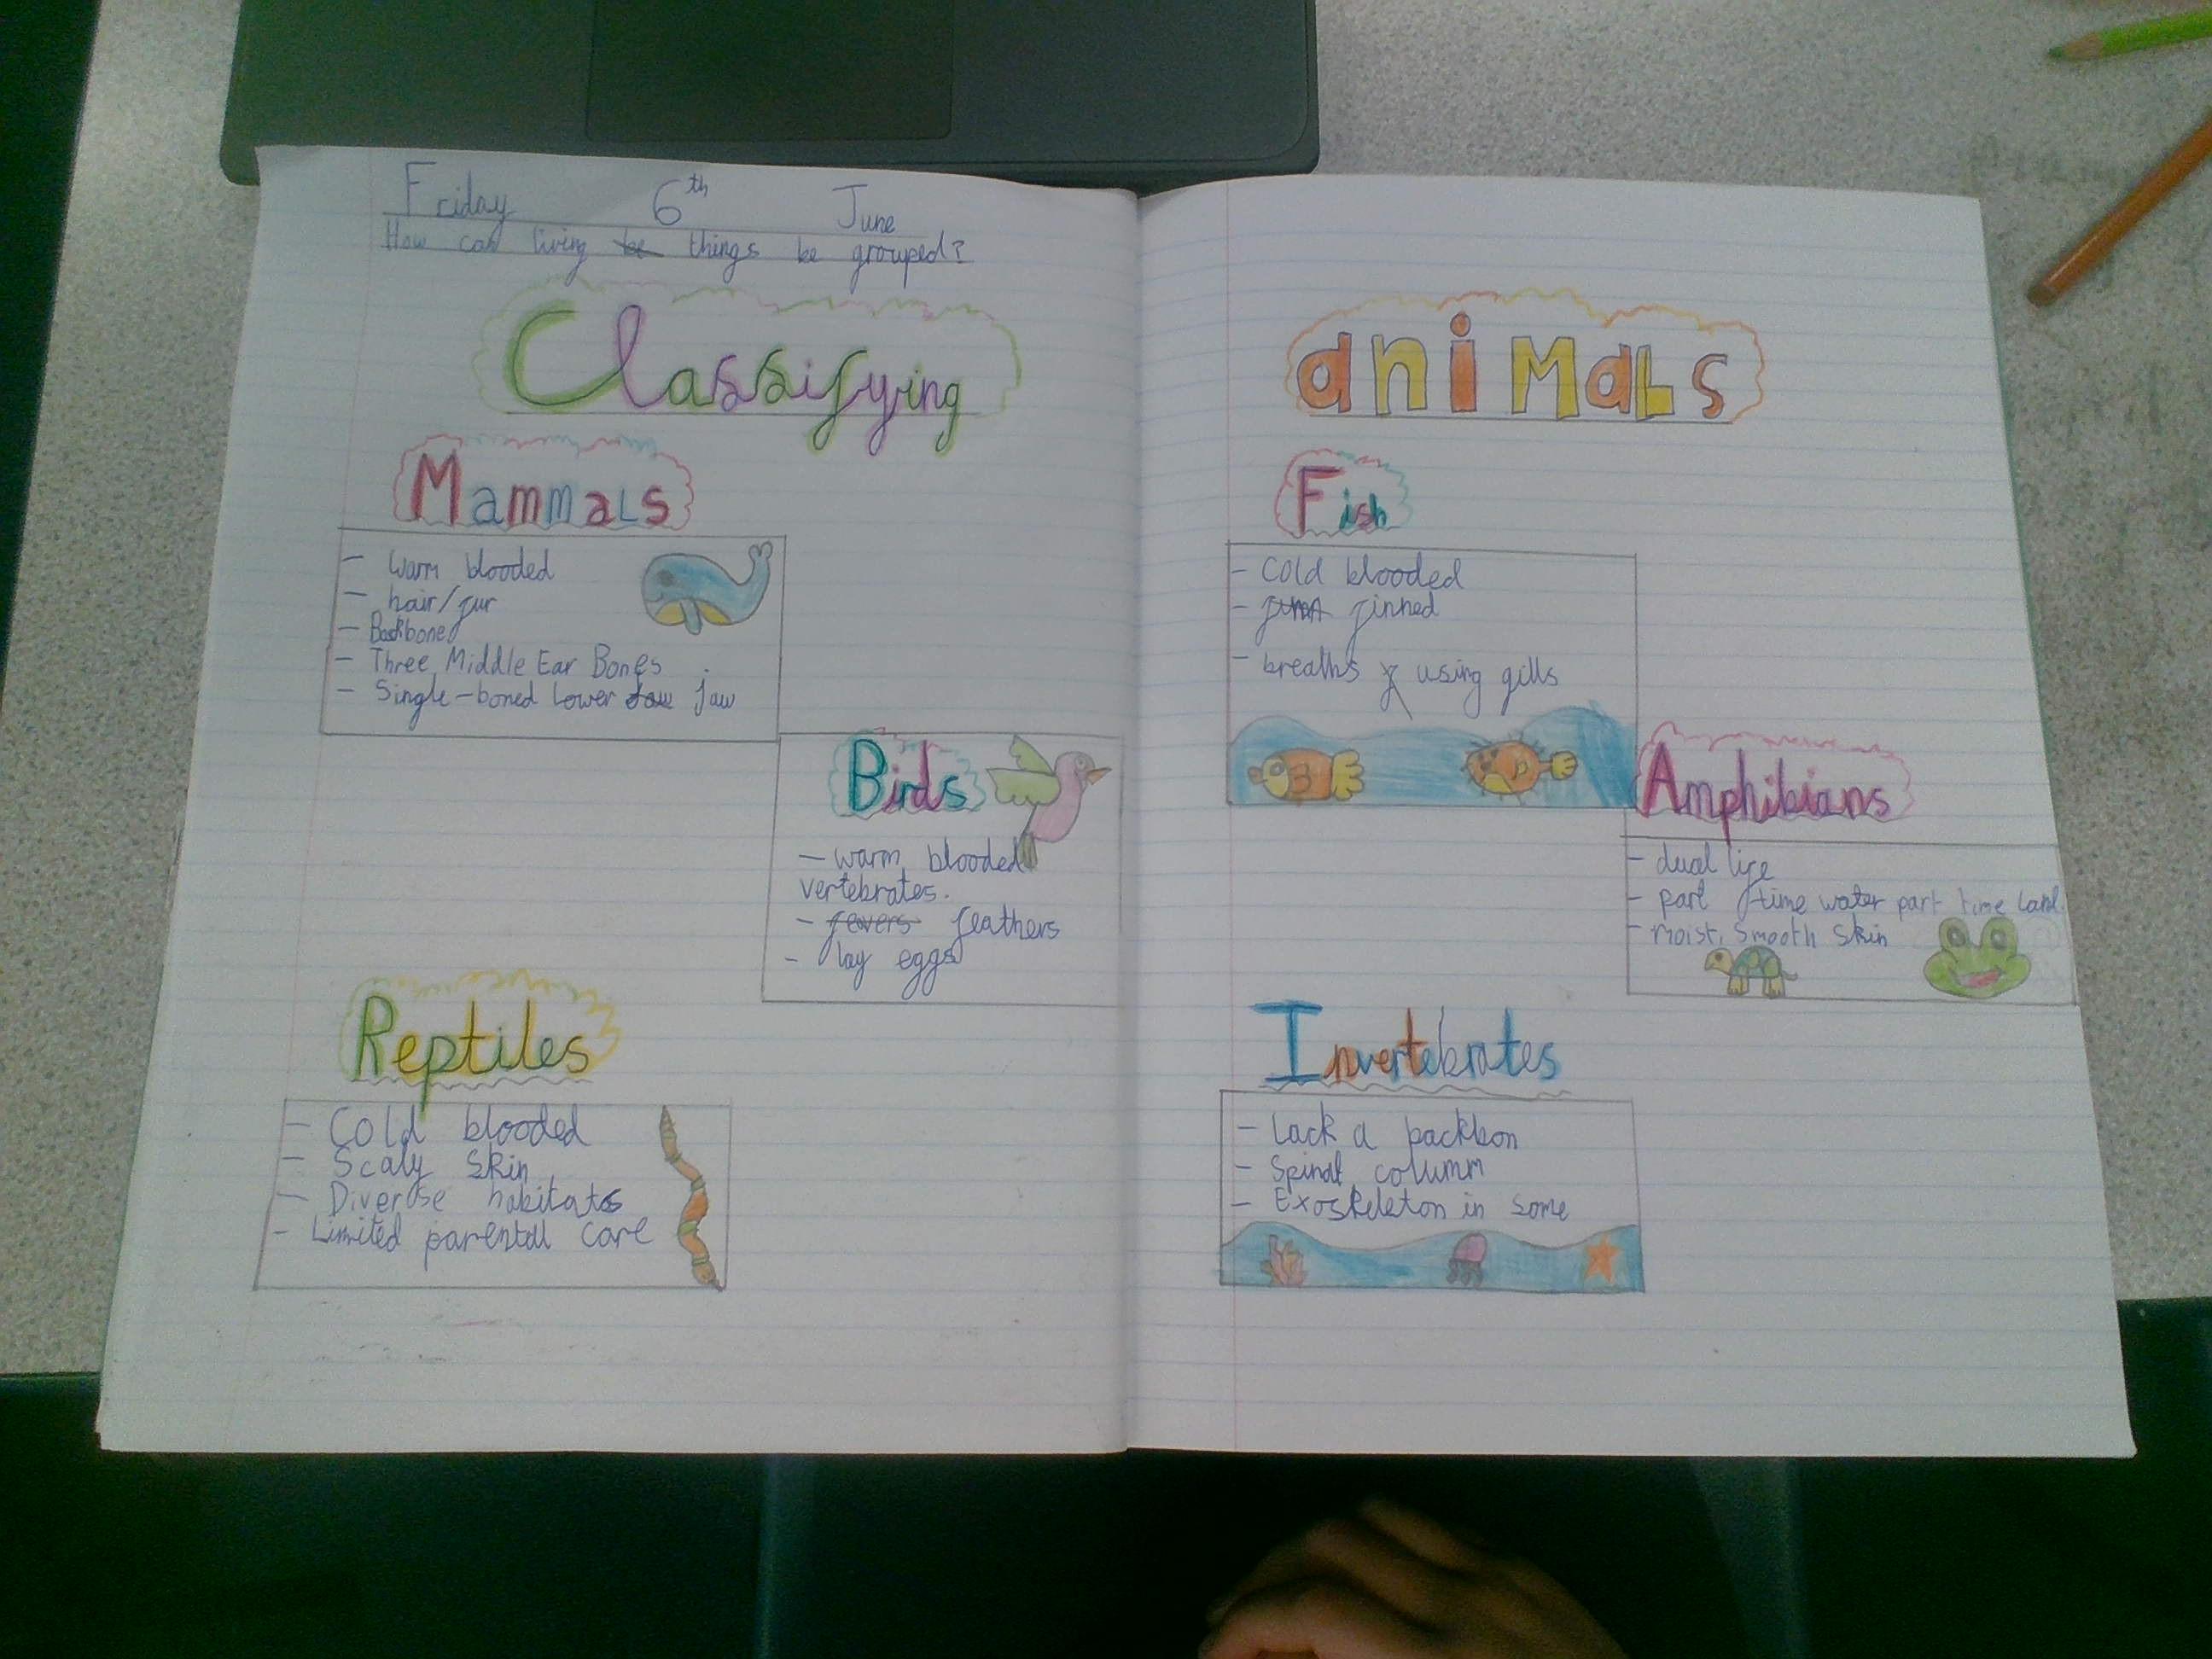 Friday 6th June
How can living be things be grouped?
Classifying
Mammals
- Warm blooded
- hair/fur
- Backbone
- Three Middle Ear Bones
- Single-boned Lower Jaw jaw
Birds
- warm blooded
vertebrates.
- fevers feathers
- lay eggs
Reptiles
- Cold blooded
- Scaly skin
- Diverse habitats
- Limited parental care
aniMaLs
Fish
- Cold blooded
- finned
- breaths using gills
Amphibians
- dual life
- part time water part time land
- moist, smooth skin
Invertebrates
- Lack a backbon
- Spinal columm
- Exoskeleton in some